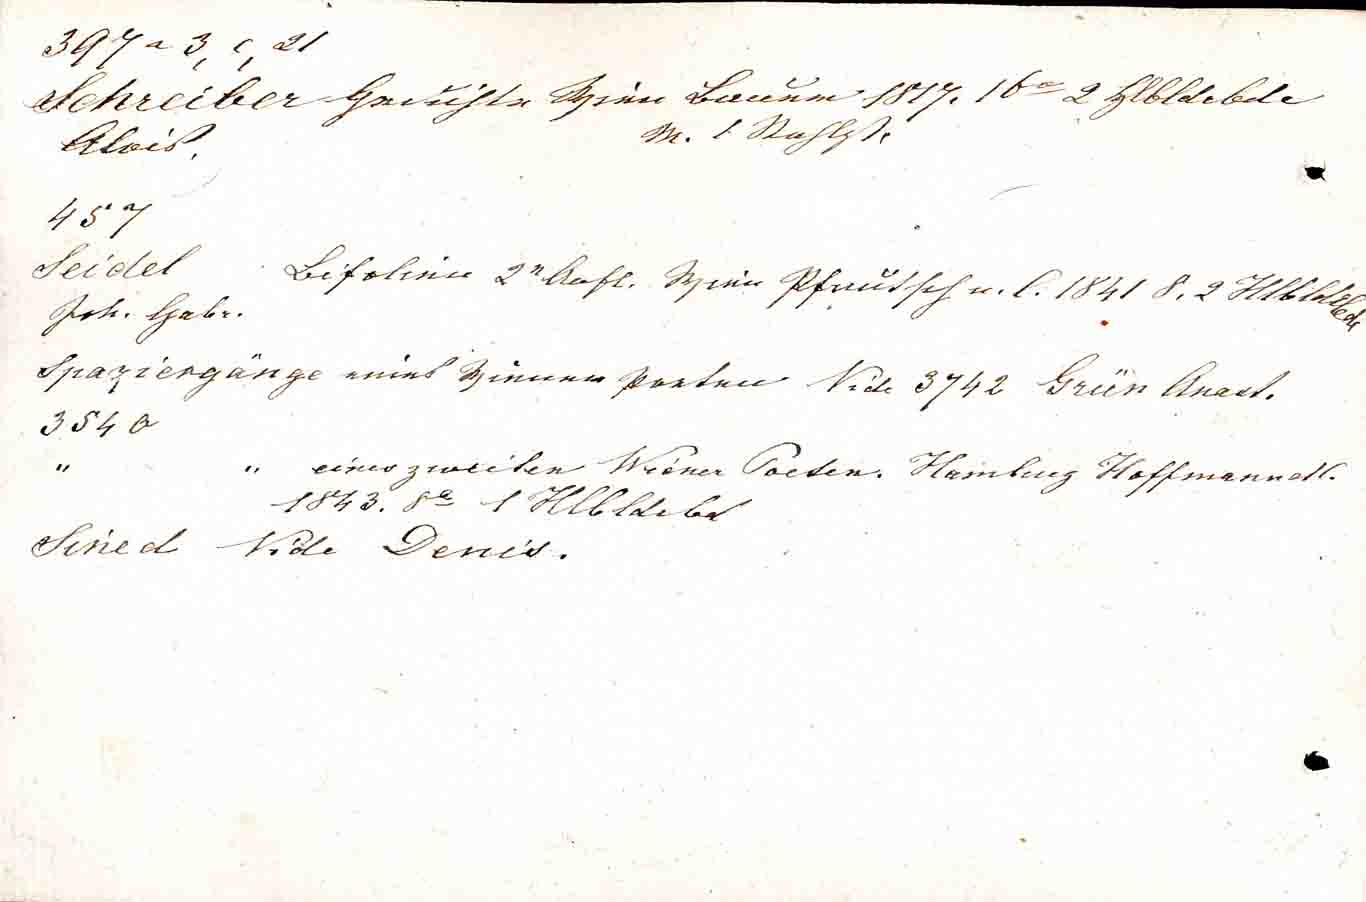 397 a 3, c, 21
Schreiber Gedichte Wien Bauer 1817. 16° 2 Hlbldrbde
Alois. m. 1 Stahlst.
457
Seidel Bifolien 2e Aufl. Wien Pfautsch u. C. 1841 8. 2 Hlbldrbde
Joh. Gabr.
Spaziergänge eines Wiener Poeten Vide 3742 Grün Anast.
3540
" " eines zweiten Wiener Poeten. Hamburg Hoffmann u C.
1843. 8° 1 Hlbldrbd
Sined Vide Denis.